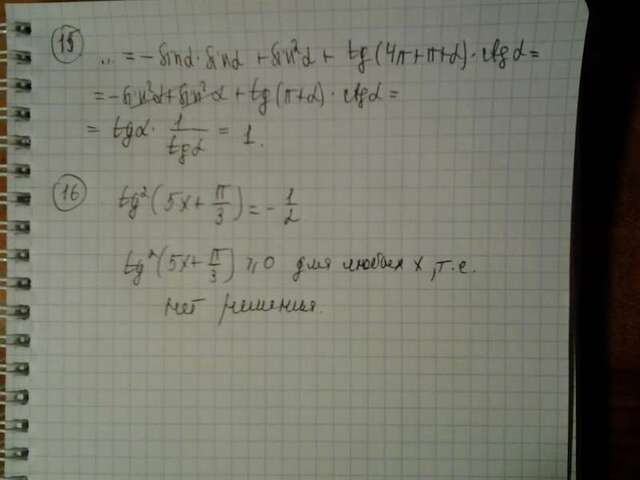 15 ... = - sinα · sinα + sin²α + tg(4π+π+α) · ctgα =
= - sin²α + sin²α + tg(π+α) · ctgα =
= tgα · 1/tgα = 1.
16 tg²(5x + π/3) = - 1/2
tg²(5x + π/3) ≥ 0 для любых x, т.е.
нет решения.